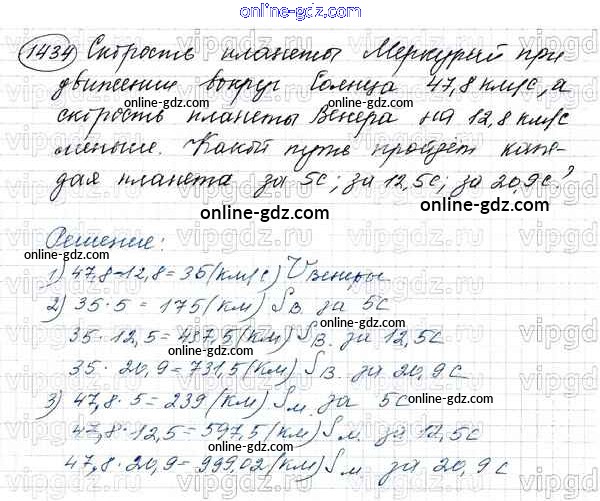 online-gdz.com
1434 Скорость планеты Меркурий при
движении вокруг Солнца 47,8 км/с, а
online-gdz.com online-gdz.com
скорость планеты Венера на 12,8 км/с
меньше. Какой путь пройдёт каж-
дая планета за 5с; за 12,5с; за 20,9с?
online-gdz.com online-gdz.com
Решение:
1) 47,8-12,8=35(км/с) Vвенеры
2) 35·5=175(км) Sв. за 5с
online-gdz.com
35·12,5=437,5(км) Sв. за 12,5с
online-gdz.com
35·20,9=731,5(км) Sв. за 20,9с
3) 47,8·5=239(км) Sм. за 5с
online-gdz.com
47,8·12,5=597,5(км) Sм за 12,5с
online-gdz.com
47,8·20,9=999,02(км) Sм. за 20,9с